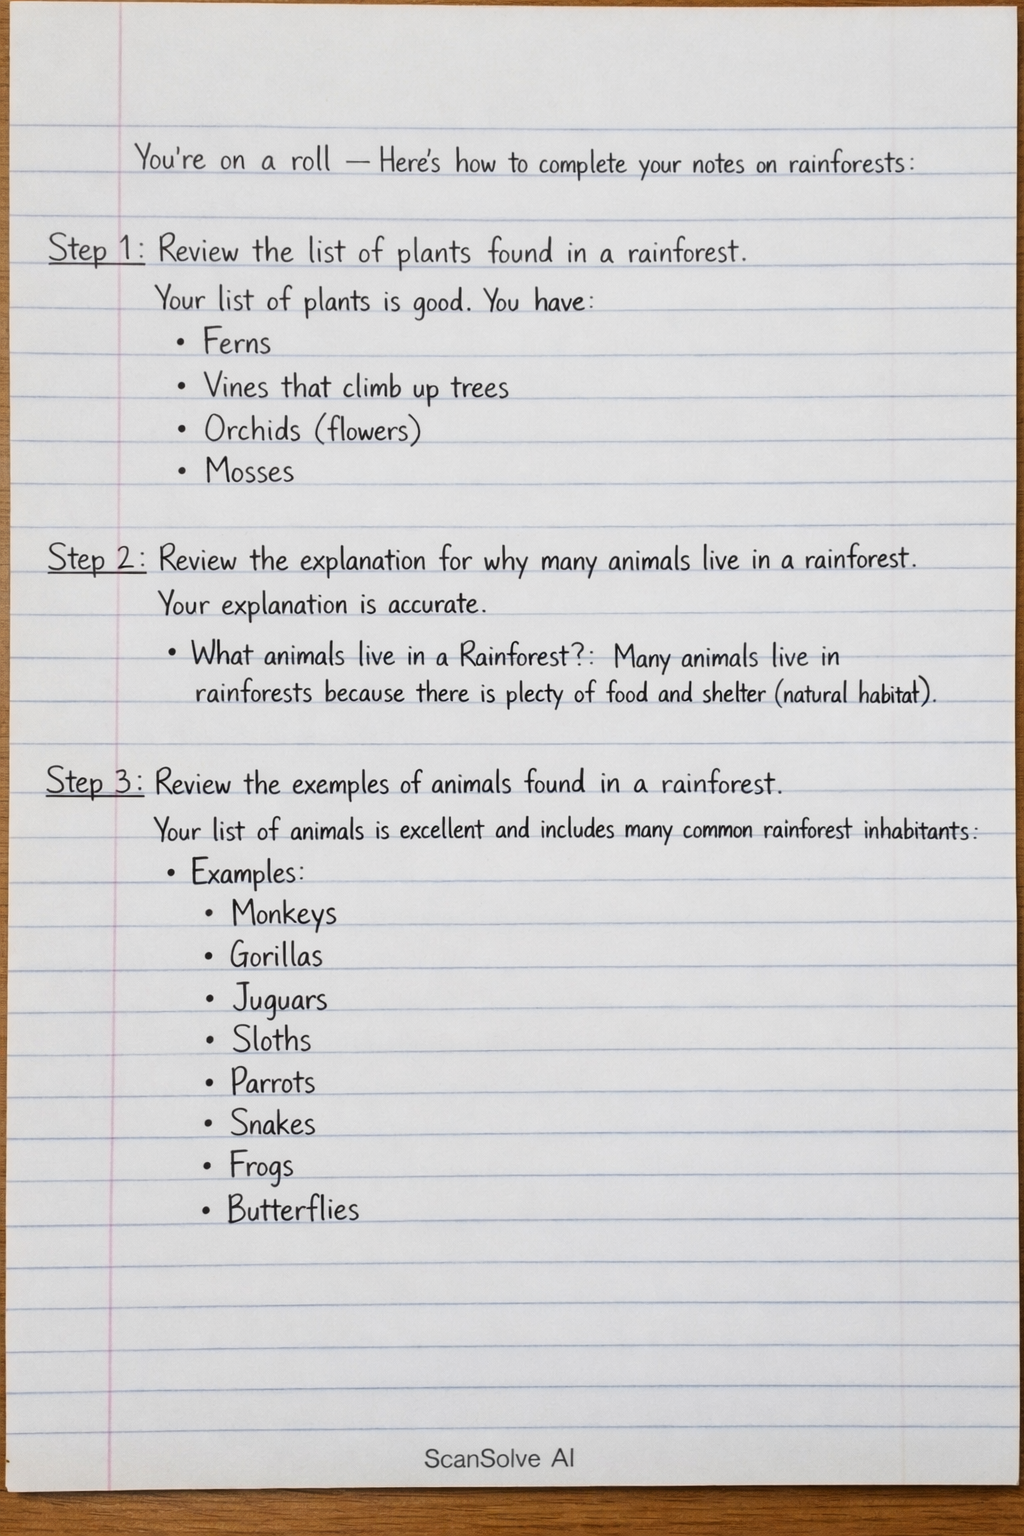 You're on a roll — Here's how to complete your notes on rainforests:
Step 1: Review the list of plants found in a rainforest.
Your list of plants is good. You have:
• Ferns
• Vines that climb up trees
• Orchids (flowers)
• Mosses
Step 2: Review the explanation for why many animals live in a rainforest.
Your explanation is accurate.
• What animals live in a Rainforest?: Many animals live in
rainforests because there is plecty of food and shelter (natural habitat).
Step 3: Review the exemples of animals found in a rainforest.
Your list of animals is excellent and includes many common rainforest inhabitants:
• Examples:
• Monkeys
• Gorillas
• Juguars
• Sloths
• Parrots
• Snakes
• Frogs
• Butterflies
ScanSolve AI